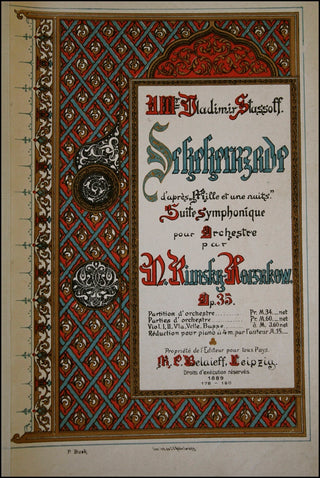 Vladimir Stassoff.
Scheherazade
d'après „Mille et une nuits."
Suite symphonique
pour Orchestre
par
N. Rimsky-Korsakow.
Op. 35.
Partition d'orchestre Pr. M. 34.— net
Parties d'orchestre Pr. M. 60.— net
Viol. I, II, Vla, Vclle, Basse à M. 3.60 net
Réduction pour piano à 4 m. par l'auteur
Propriété de l'Editeur pour tous Pays.
M. P. Belaieff, Leipzig.
Droits d'exécution réservés.
1889